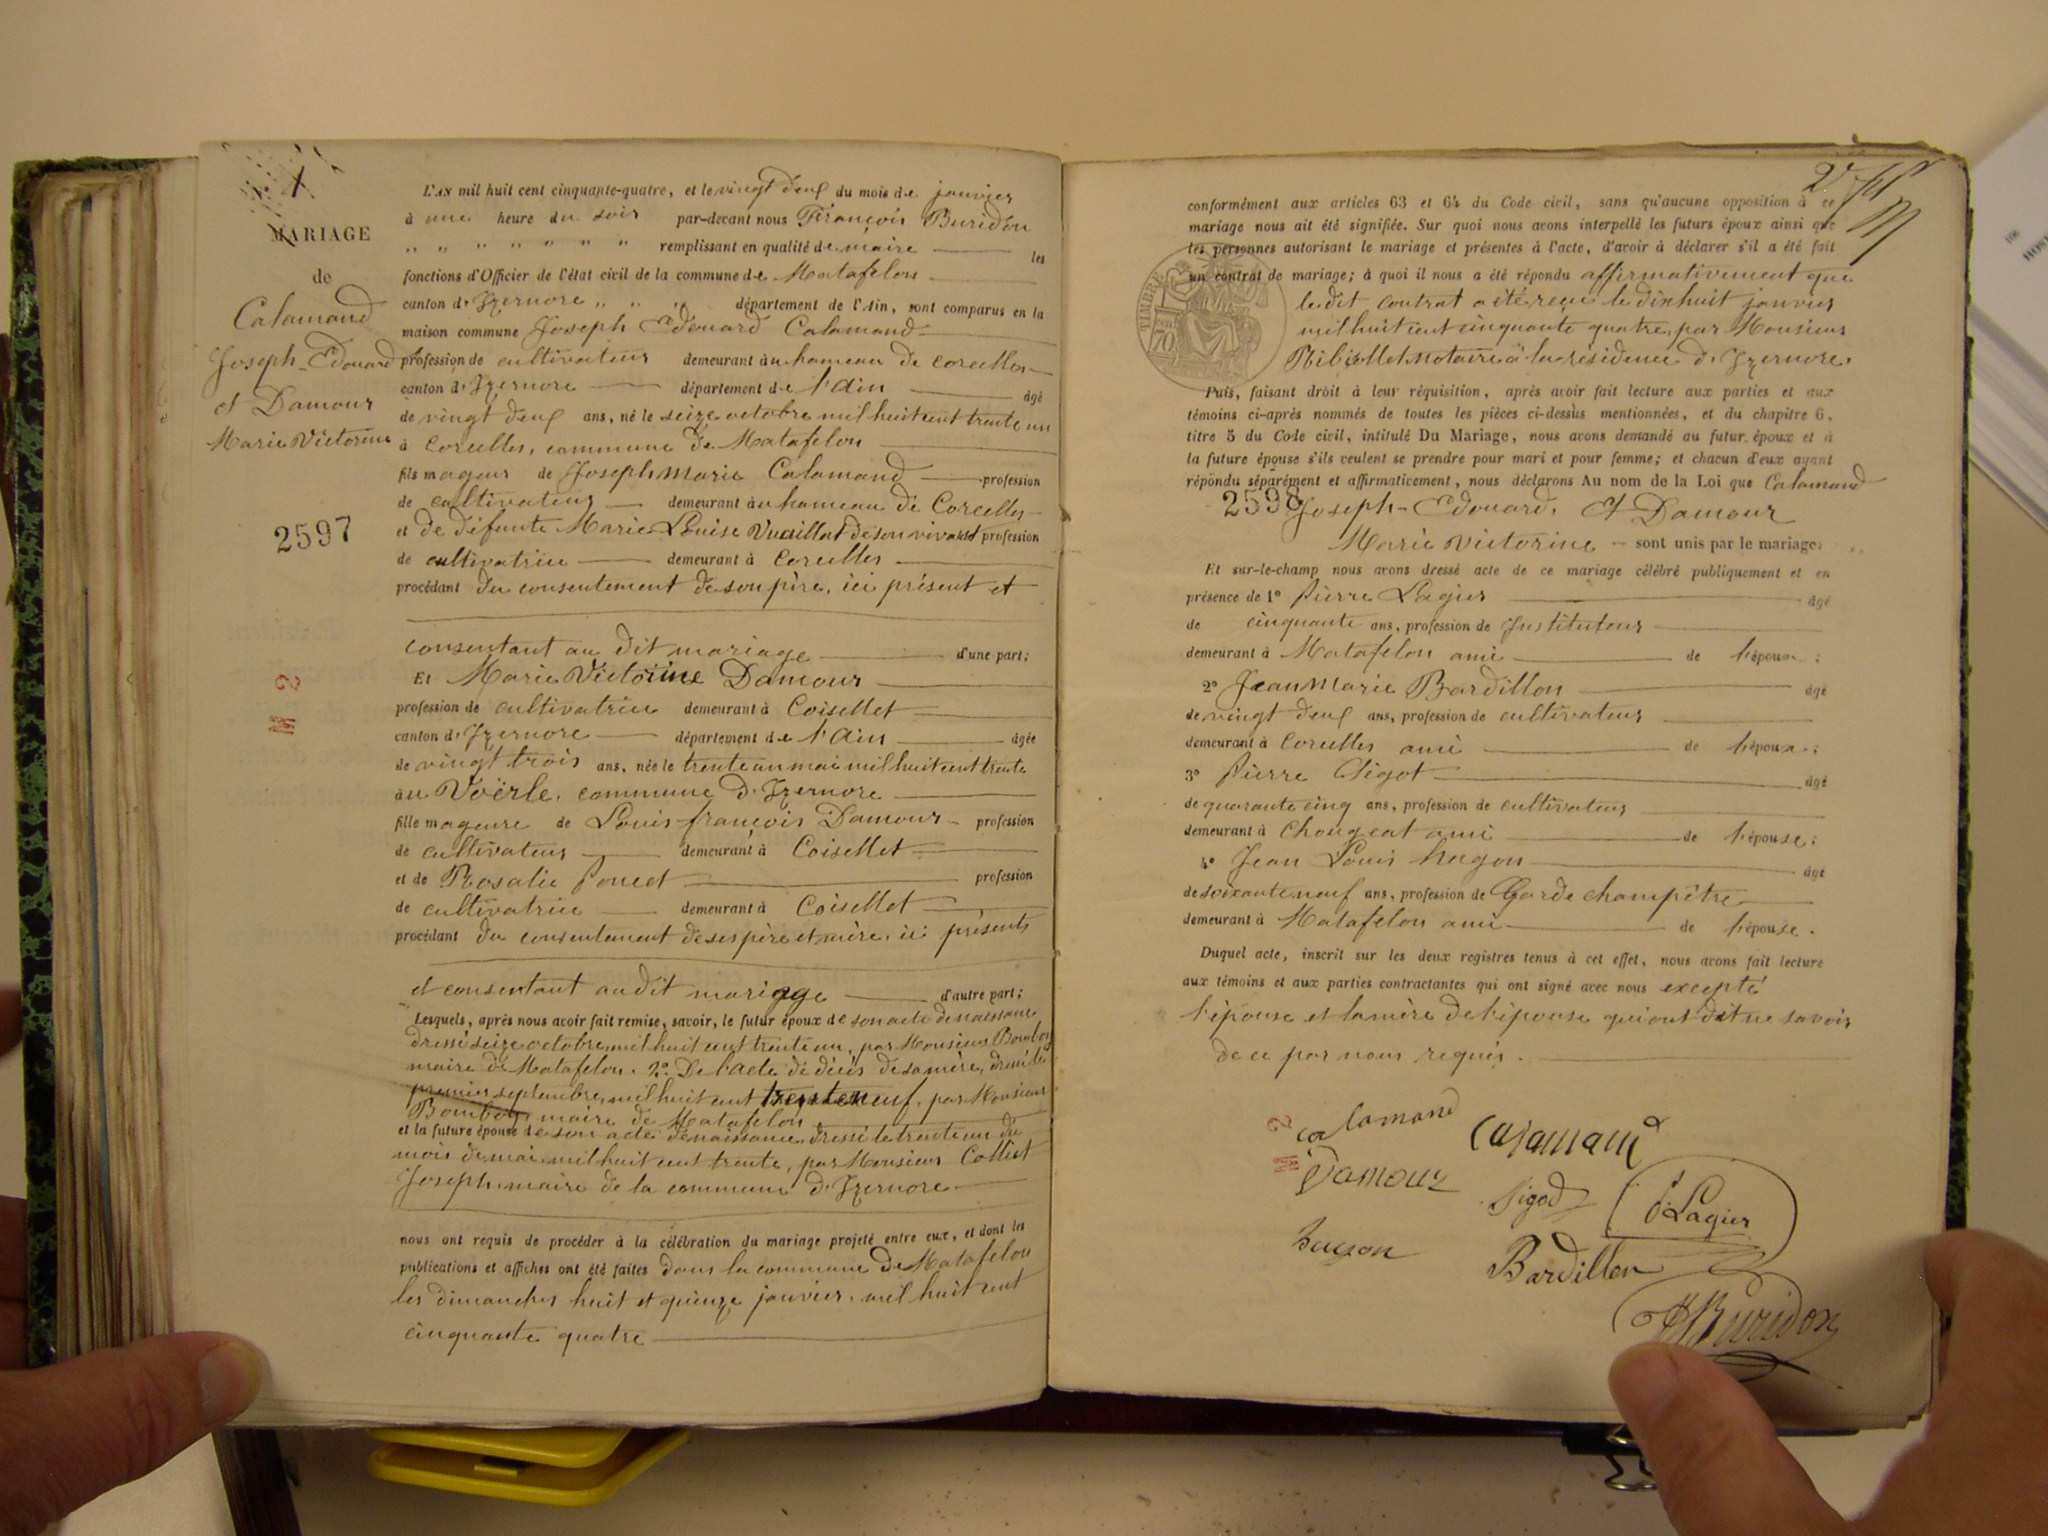 1
MARIAGE
de
Calamand
Joseph-Edouard
et Damour
Marie Victorine
2597
2
M
L'AN mil huit cent cinquante-quatre, et le vingt deux du mois de janvier
à une heure du soir par-devant nous François Buridon
" " " " " " " remplissant en qualité de maire les
fonctions d'Officier de l'état civil de la commune de Matafelon
canton d'Izernore " " " département de l'Ain, sont comparus en la
maison commune Joseph Edouard Calamand
profession de cultivateur demeurant au hameau de corcelles
canton d'Izernore département de l'Ain âgé
de vingt deux ans, né le seize octobre mil huit cent trente un
à Corcelles, commune de Matafelon
fils mageur de Joseph Marie Calamand profession
de cultivateur demeurant au hameau de Corcelles
et de défunte Marie Louise Vuaillat de son vivant profession
de cultivatrice demeurant à Corcelles
procédant du consentement de son père, ici présent et
consentant au dit mariage d'une part;
Et Marie Victorine Damour
profession de cultivatrice demeurant à Coisellet
canton d'Izernore département de l'Ain âgée
de vingt trois ans, née le trente un mai mil huit cent trente
au Voërle, commune d'Izernore
fille mageure de Louis françois Damour profession
de cultivateur demeurant à Coisellet
et de Rosalie Poncet profession
de cultivatrice demeurant à Coisellet
procédant du consentement de ses père et mère, ici présents
et consentant au dit mariage d'autre part;
Lesquels, après nous avoir fait remise, savoir, le futur époux de son acte de naissance
dressé seize octobre, mil huit cent trente un, par Monsieur Bomboy
maire de Matafelon. 2° De l'acte de décès de sa mère, dressé le
premier septembre, mil huit cent trente neuf, par Monsieur
Bomboy, maire de Matafelon
et la future épouse de son acte de naissance, dressé le trente un du
mois de mai mil huit cent trente, par Monsieur Colliet
Joseph, maire de la commune d'Izernore
nous ont requis de procéder à la célébration du mariage projeté entre eux, et dont les
publications et affiches ont été faites dans la commune de Matafelon
les dimanches huit et quinze janvier, mil huit cent
cinquante quatre
2e
conformément aux articles 63 et 64 du Code civil, sans qu'aucune opposition à ce
mariage nous ait été signifiée. Sur quoi nous avons interpellé les futurs époux ainsi que
les personnes autorisant le mariage et présentes à l'acte, d'avoir à déclarer s'il a été fait
un contrat de mariage; à quoi il nous a été répondu affirmativement que
le dit contrat a été reçu le dix huit janvier
mil huit cent cinquante quatre, par Monsieur
notaire à la résidence d'Izernore.
TIMBRE
70
Puis, faisant droit à leur réquisition, après avoir fait lecture aux parties et aux
témoins ci-après nommés de toutes les pièces ci-dessus mentionnées, et du chapitre 6,
titre 5 du Code civil, intitulé Du Mariage, nous avons demandé au futur époux et à
la future épouse s'ils veulent se prendre pour mari et pour femme; et chacun d'eux ayant
répondu séparément et affirmativement, nous déclarons Au nom de la Loi que Calamand
2598 Joseph-Edouard, Et Damour
Marie Victorine sont unis par le mariage.
Et sur-le-champ nous avons dressé acte de ce mariage célébré publiquement et en
présence de 1° Pierre Lagier âgé
de cinquante ans, profession de Instituteur
demeurant à Matafelon ami de l'époux;
2° Jean Marie Bardillon âgé
de vingt deux ans, profession de cultivateur
demeurant à Corcelles ami de l'époux;
3° Pierre Sigot âgé
de quarante cinq ans, profession de cultivateur
demeurant à Chougeat ami de l'épouse;
4° Jean Louis hugon âgé
de soixante neuf ans, profession de Garde champêtre
demeurant à Matafelon ami de l'épouse.
Duquel acte, inscrit sur les deux registres tenus à cet effet, nous avons fait lecture
aux témoins et aux parties contractantes qui ont signé avec nous excepté
l'épouse et la mère de l'épouse qui ont dit ne savoir
de ce par nous requis.
2
M
calamand
Calamand
Damour
Sigod
P. Lagier
hugon
Bardillon
Buridon